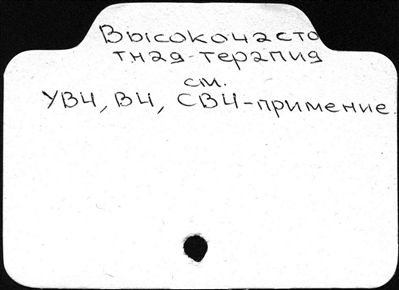 Высокочасто
тная-терапия
см.
УВЧ, ВЧ, СВЧ-примение.